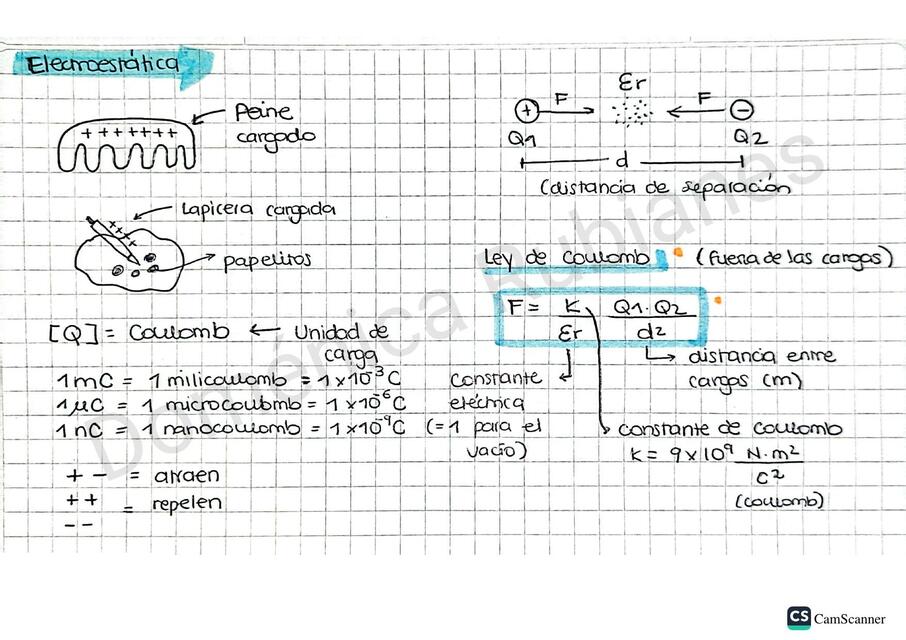 Electroestática
Peine
cargado
+ + + + + + +
Lapicera cargada
++++
papelitos
[Q] = Coulomb ← Unidad de
carga
1mC = 1 milicoulomb = 1x10⁻³C
1μC = 1 microcoulomb = 1x10⁻⁶C
1nC = 1 nanocoulomb = 1x10⁻⁹C
+ - = atraen
+ +
= repelen
- -
Er
+ F F -
Q1 Q2
d
(distancia de separación
Ley de Coulomb (fuerza de las cargas)
F = K/Er Q1.Q2/d2
distancia entre
cargas (m)
constante
eléctrica
(=1 para el
vacío)
constante de coulomb
K = 9x10⁹ N.m²/C²
(coulomb)
Doménica Rubianes
CS CamScanner